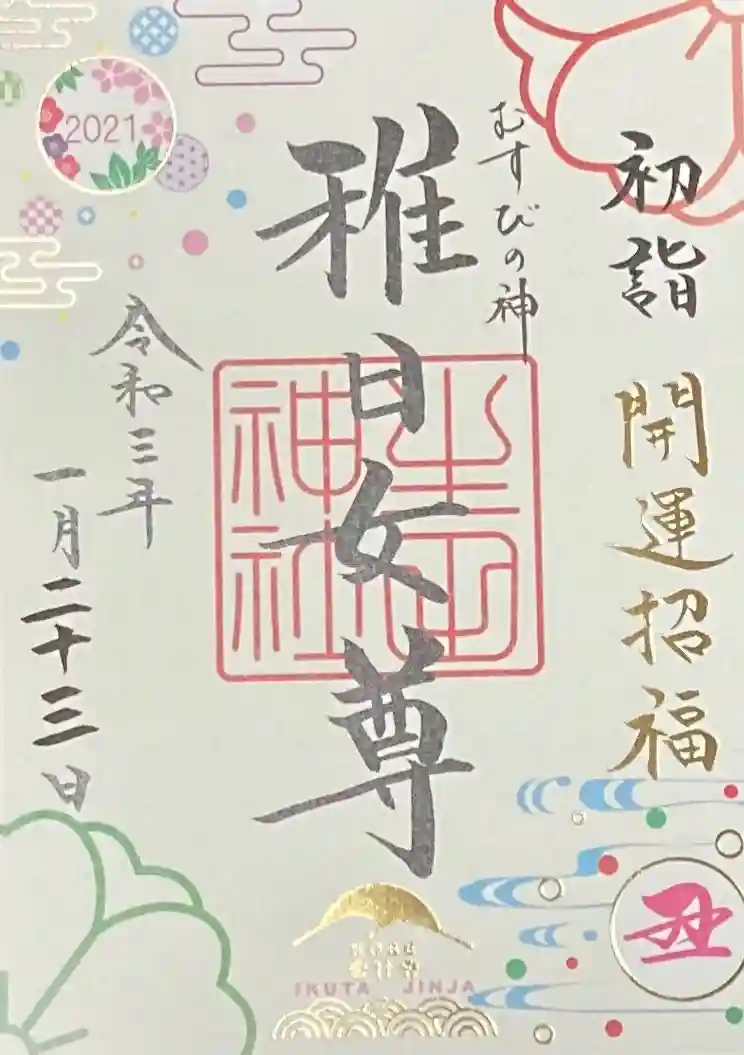 初詣 開運招福
丑
むすびの神
稚日女尊
生田神社
令和三年
一月二十三日
2021
IKUTA JINJA